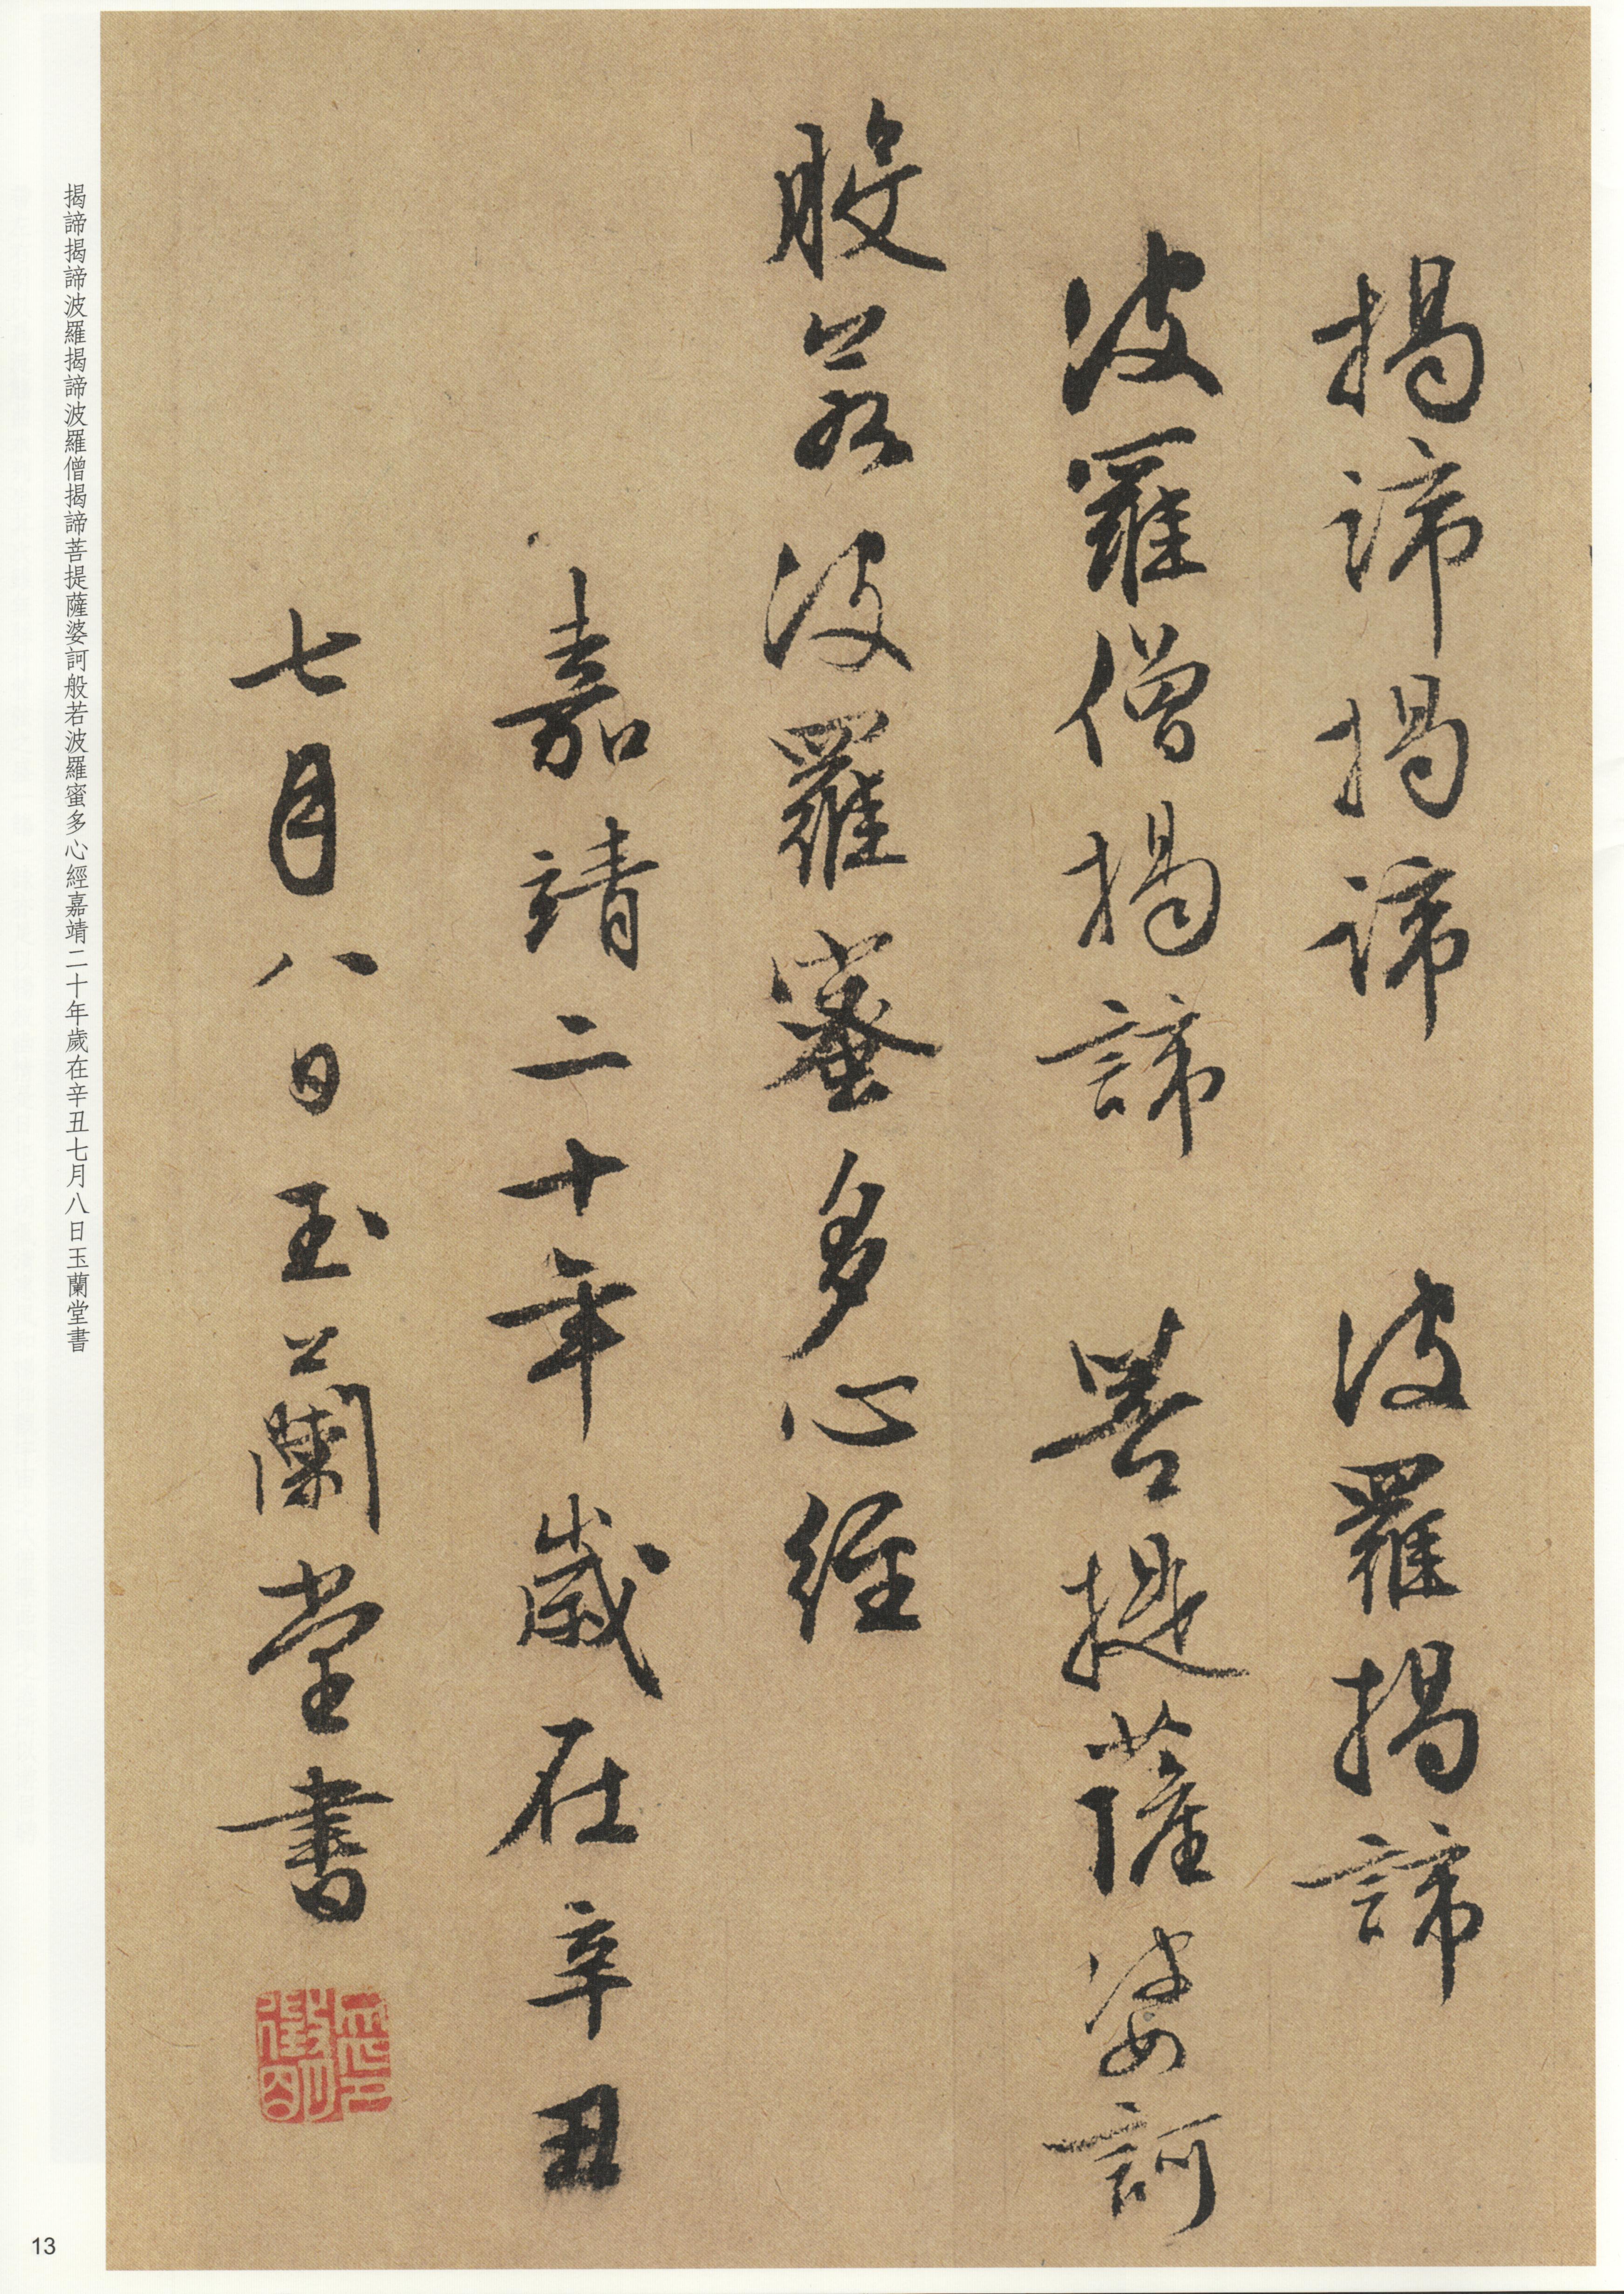 揭諦揭諦　波羅揭諦
波羅僧揭諦　菩提薩婆訶
般若波羅蜜多心經
嘉靖二十年歲在辛丑
七月八日玉蘭堂書
徵明
揭諦揭諦波羅揭諦波羅僧揭諦菩提薩婆訶般若波羅蜜多心經嘉靖二十年歲在辛丑七月八日玉蘭堂書
13